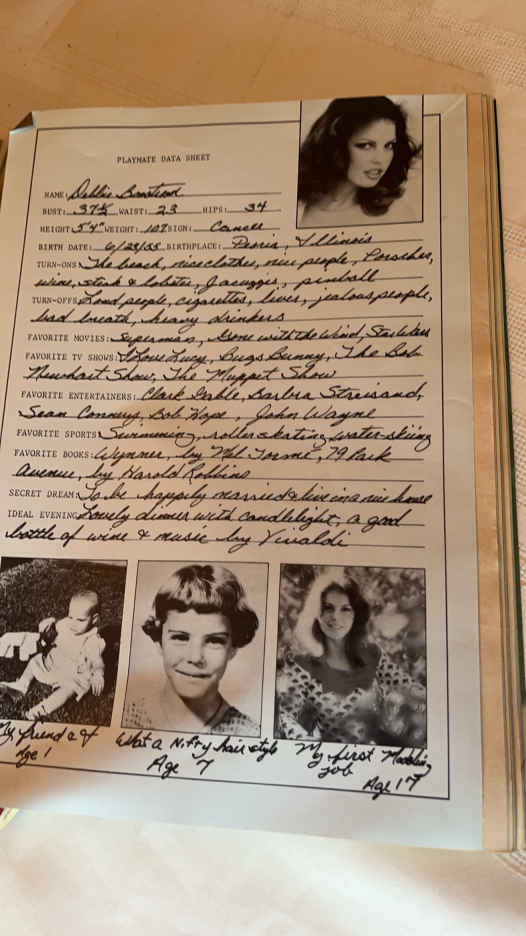 PLAYMATE DATA SHEET
NAME: Debbie
BUST: 37½ WAIST: 23 HIPS: 34
HEIGHT: 5'4" WEIGHT: 107 SIGN: Cancer
BIRTH DATE: 6/28/55 BIRTHPLACE: Peoria, Illinois
TURN-ONS: The beach, nice clothes, nice people, Porsches,
wine, steak & lobster, Jacuzzis, pinball
TURN-OFFS: Loud people, cigarettes, liars, jealous people,
bad breath, heavy drinkers
FAVORITE MOVIES: Superman, Gone with the Wind, Star Wars
FAVORITE TV SHOWS: I Love Lucy, Bugs Bunny, The Bob
Newhart Show, The Muppet Show
FAVORITE ENTERTAINERS: Clark Gable, Barbra Streisand,
Sean Connery, Bob Hope, John Wayne
FAVORITE SPORTS: Swimming, roller skating, water-skiing
FAVORITE BOOKS: Wynner, by Mel Tormé, 79 Park
Avenue, by Harold Robbins
SECRET DREAM: To be happily married & live in a nice house
IDEAL EVENING: Lovely dinner with candlelight, a good
bottle of wine & music by Vivaldi
My friend & I
Age 1
What a Nifty hair style
Age 7
My first Modeling
job
Age 17